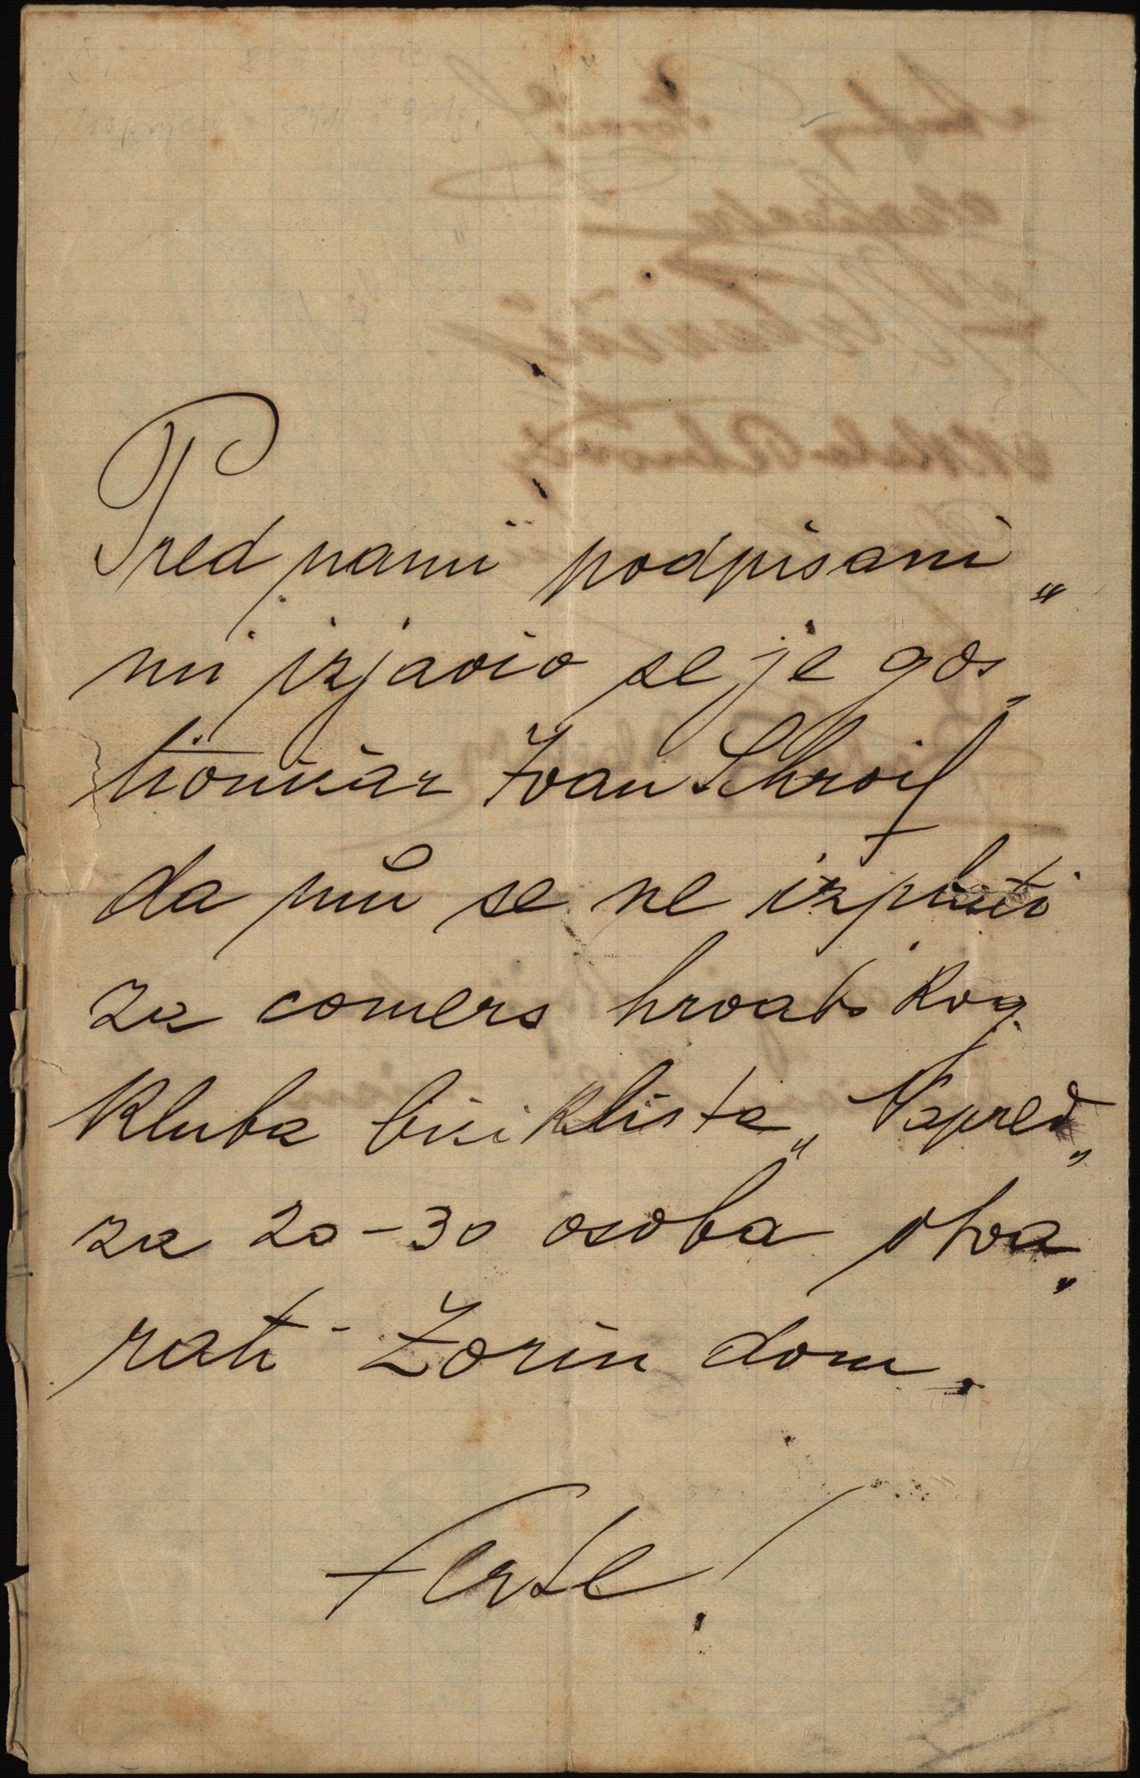 Pred nami podpisani„
mi izjavio se je gos„
tioničar Ivan Schroif
da mu se ne izplati
za comers hrvatskog
kluba biciklista „Napred„
za 20-30 osoba otva„
rati Zorin dom.